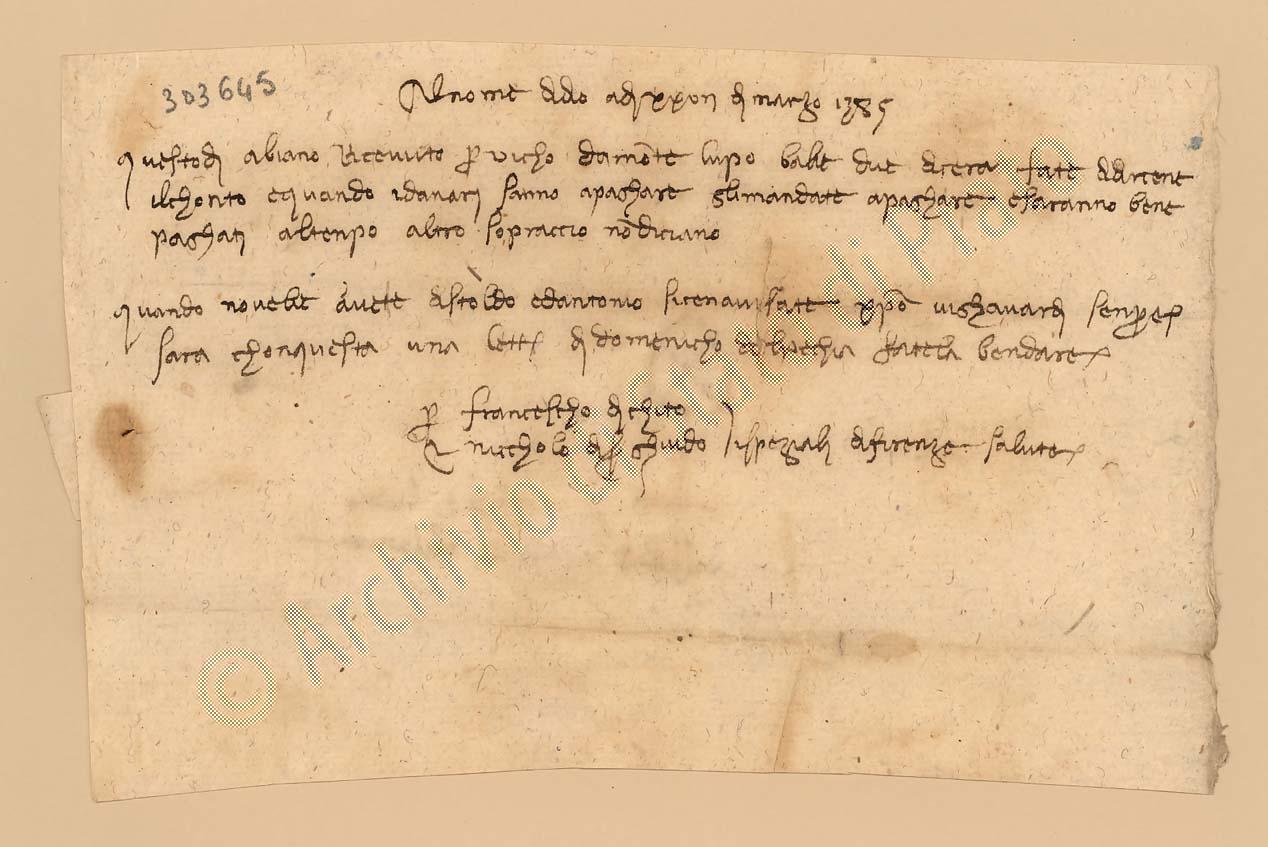 303645
Al nome di dio adi xxvii di marzo 1385
questo di abiano ricevuto per vicho da monte lupo balle due di cera fate di darcene
il chonto e quando i danari sanno a paghare gli mandate a paghare e saranno bene
paghati al tenpo altro sopraccio non diciano
quando novelle avete di stoldo ed antonio si ce n avisate xpo vi ghuardi senpre
sara chon questa una lett di domenicho fatela ben dare
per francescho di chito
e niccholo di ghuido ispeziali di firenze salute
© Archivio di Stato di Prato